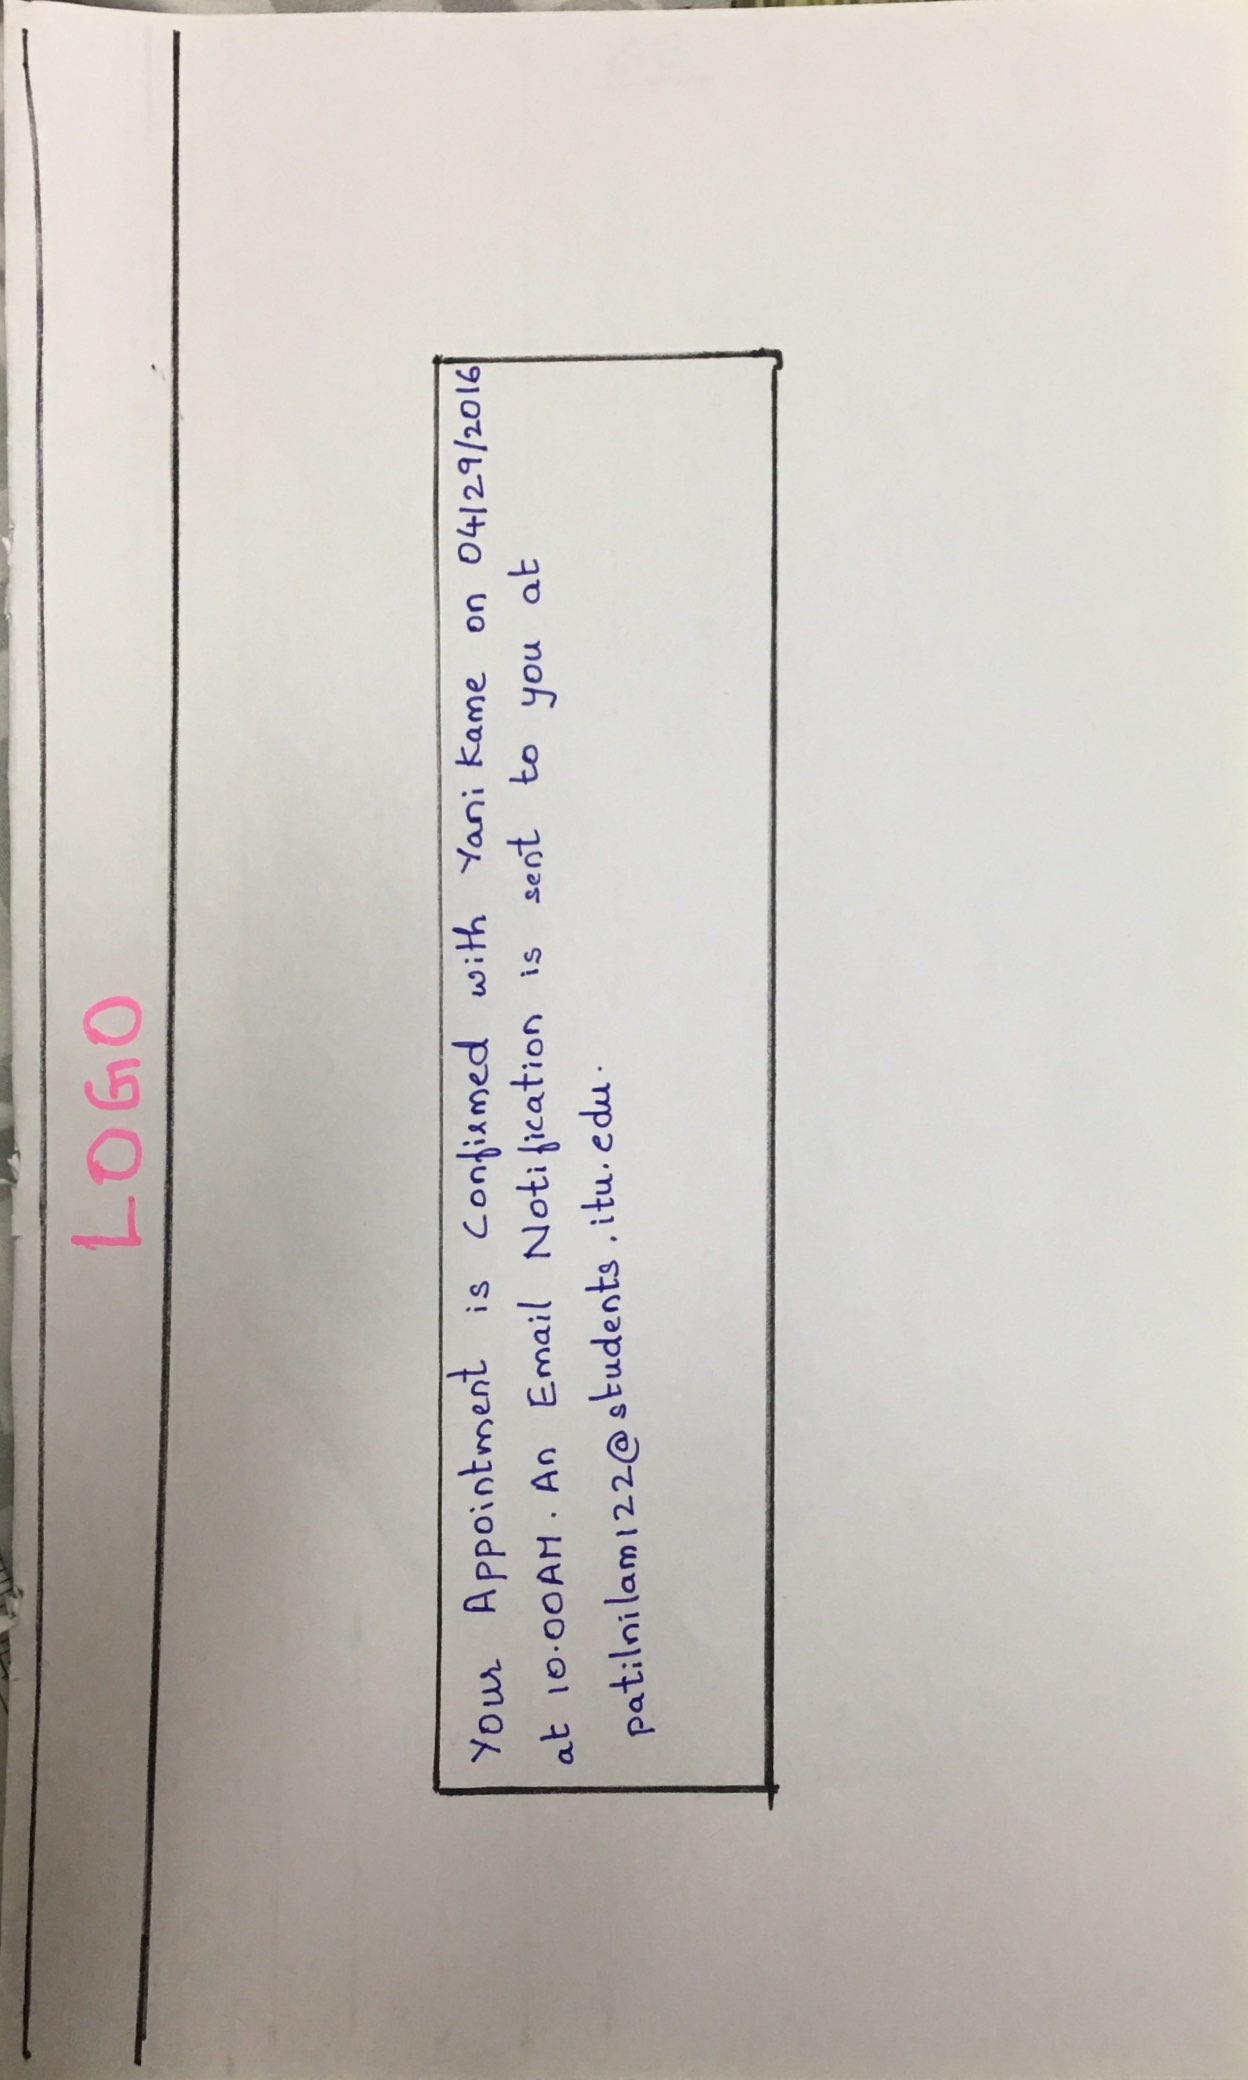 LOGO
Your Appointment is Confirmed with Yani Kame on 04/29/2016
at 10.00AM. An Email Notification is sent to you at
patilnilam122@students.itu.edu.